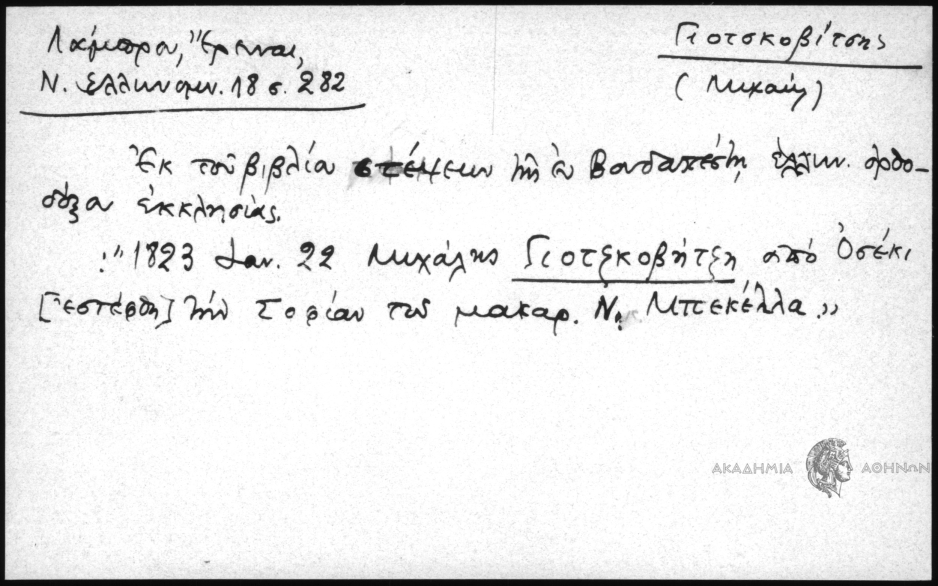 Λάμπρου, Έρευναι,
Ν. Ελληνομν. 18 σ. 282
Γιοτσκοβίτσης
(Μιχαήλ)
Ἐκ τοῦ βιβλίου στέψεων τῆς ἐν Βουδαπέστῃ ἑλλην. ὀρθο-
δόξου ἐκκλησίας.
"1823 Ιαν. 22 Μιχάλης Γιοτζκοβήτζη ἀπό Ὀσέκι
[ἐστέφθη] τήν Σοφίαν τοῦ μακαρ. Ν. Μπεκέλλα."
ΑΚΑΔΗΜΙΑ ΑΘΗΝΩΝ